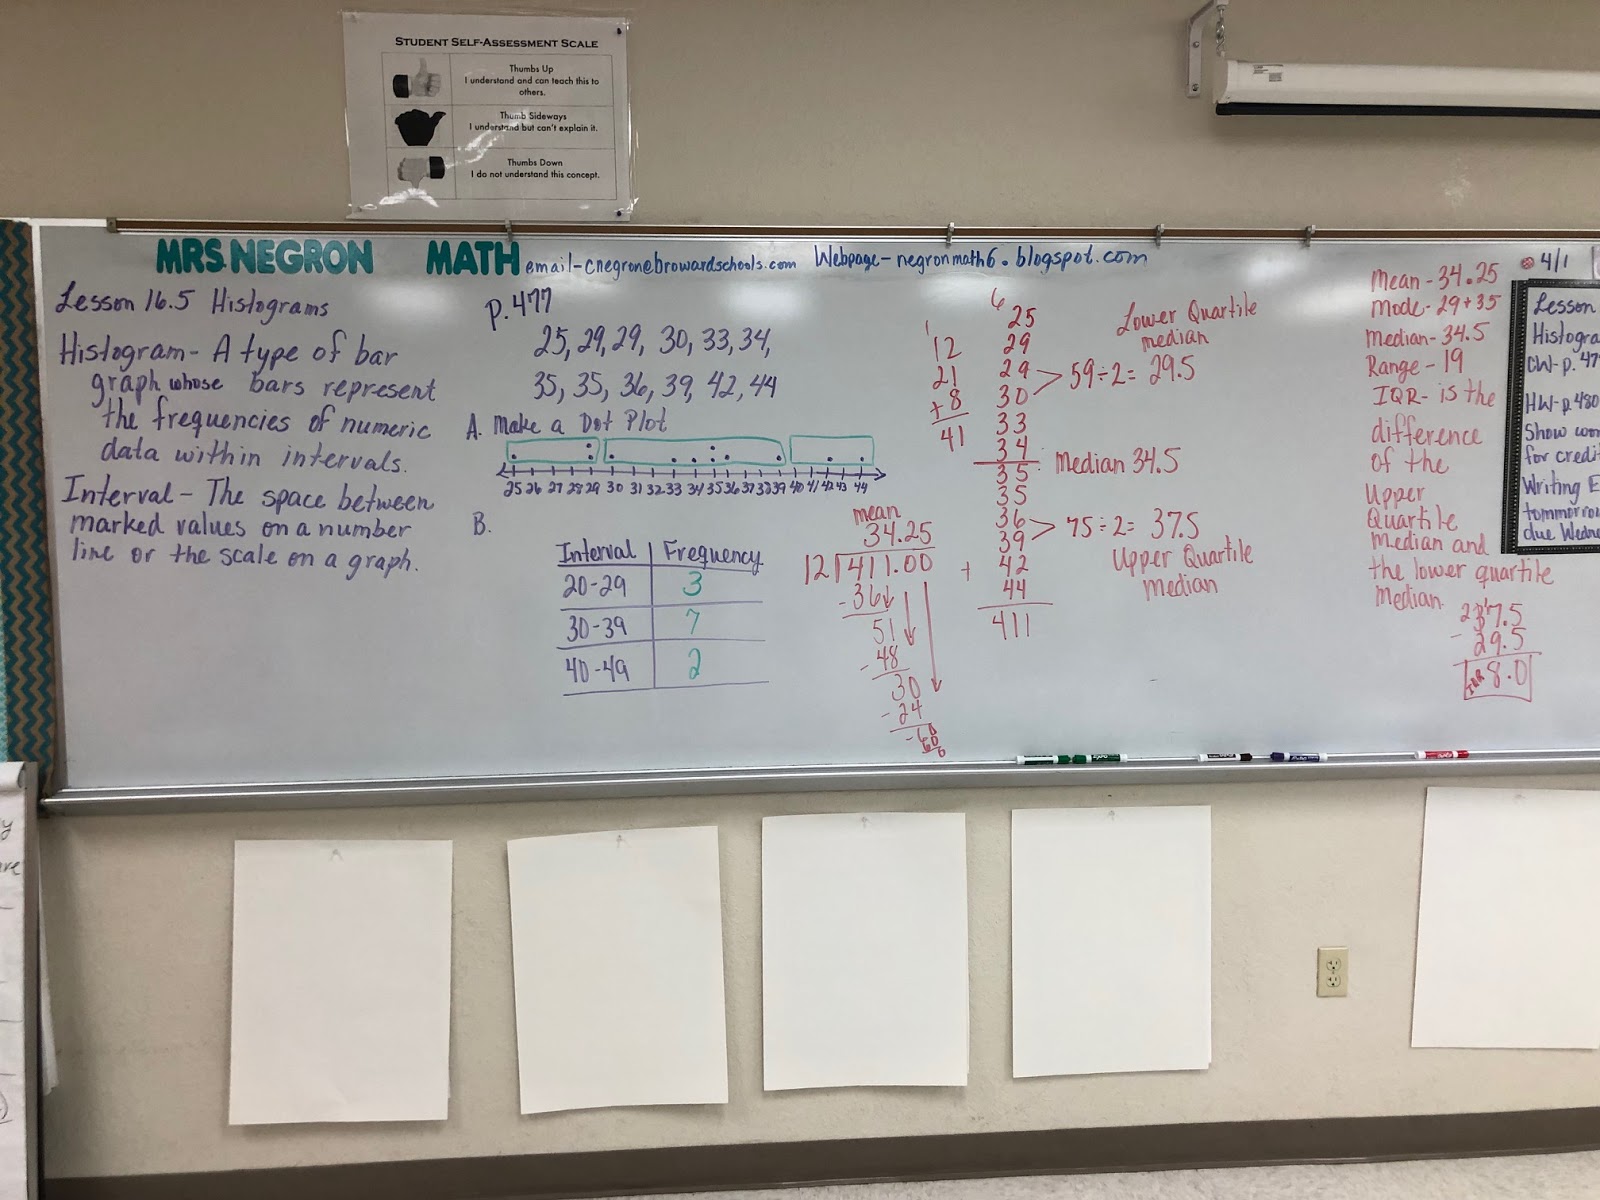 STUDENT SELF-ASSESSMENT SCALE
Thumbs Up
I understand and can teach this to
others.
Thumb Sideways
I understand but can't explain it.
Thumbs Down
I do not understand this concept.
MRS. NEGRON MATH email-cnegron@browardschools.com Webpage-negronmath6.blogspot.com
4/1
Lesson 16.5 Histograms
Histogram- A type of bar
graph whose bars represent
the frequencies of numeric
data within intervals.
Interval- The space between
marked values on a number
line or the scale on a graph.
p.477
25, 29, 29, 30, 33, 34,
35, 35, 36, 39, 42, 44
A. Make a Dot Plot
25 26 27 28 29 30 31 32 33 34 35 36 37 38 39 40 41 42 43 44
B.
Interval Frequency
20-29 3
30-39 7
40-49 2
mean
34.25
12 411.00
-36
51
-48
30
-24
60
60
0
1
12
21
+8
41
6
25
29
29
30
33
34
35
35
36
39
+ 42
44
411
Lower Quartile
median
59÷2= 29.5
Median 34.5
75÷2= 37.5
Upper Quartile
Median
Mean-34.25
Mode-29+35
Median-34.5
Range-19
IQR- is the
difference
of the
Upper
Quartile
Median and
the lower quartile
Median.
37.5
-29.5
IQR 8.0
Lesson
CW-p.
HW-p 480
Show
for
Writing
due